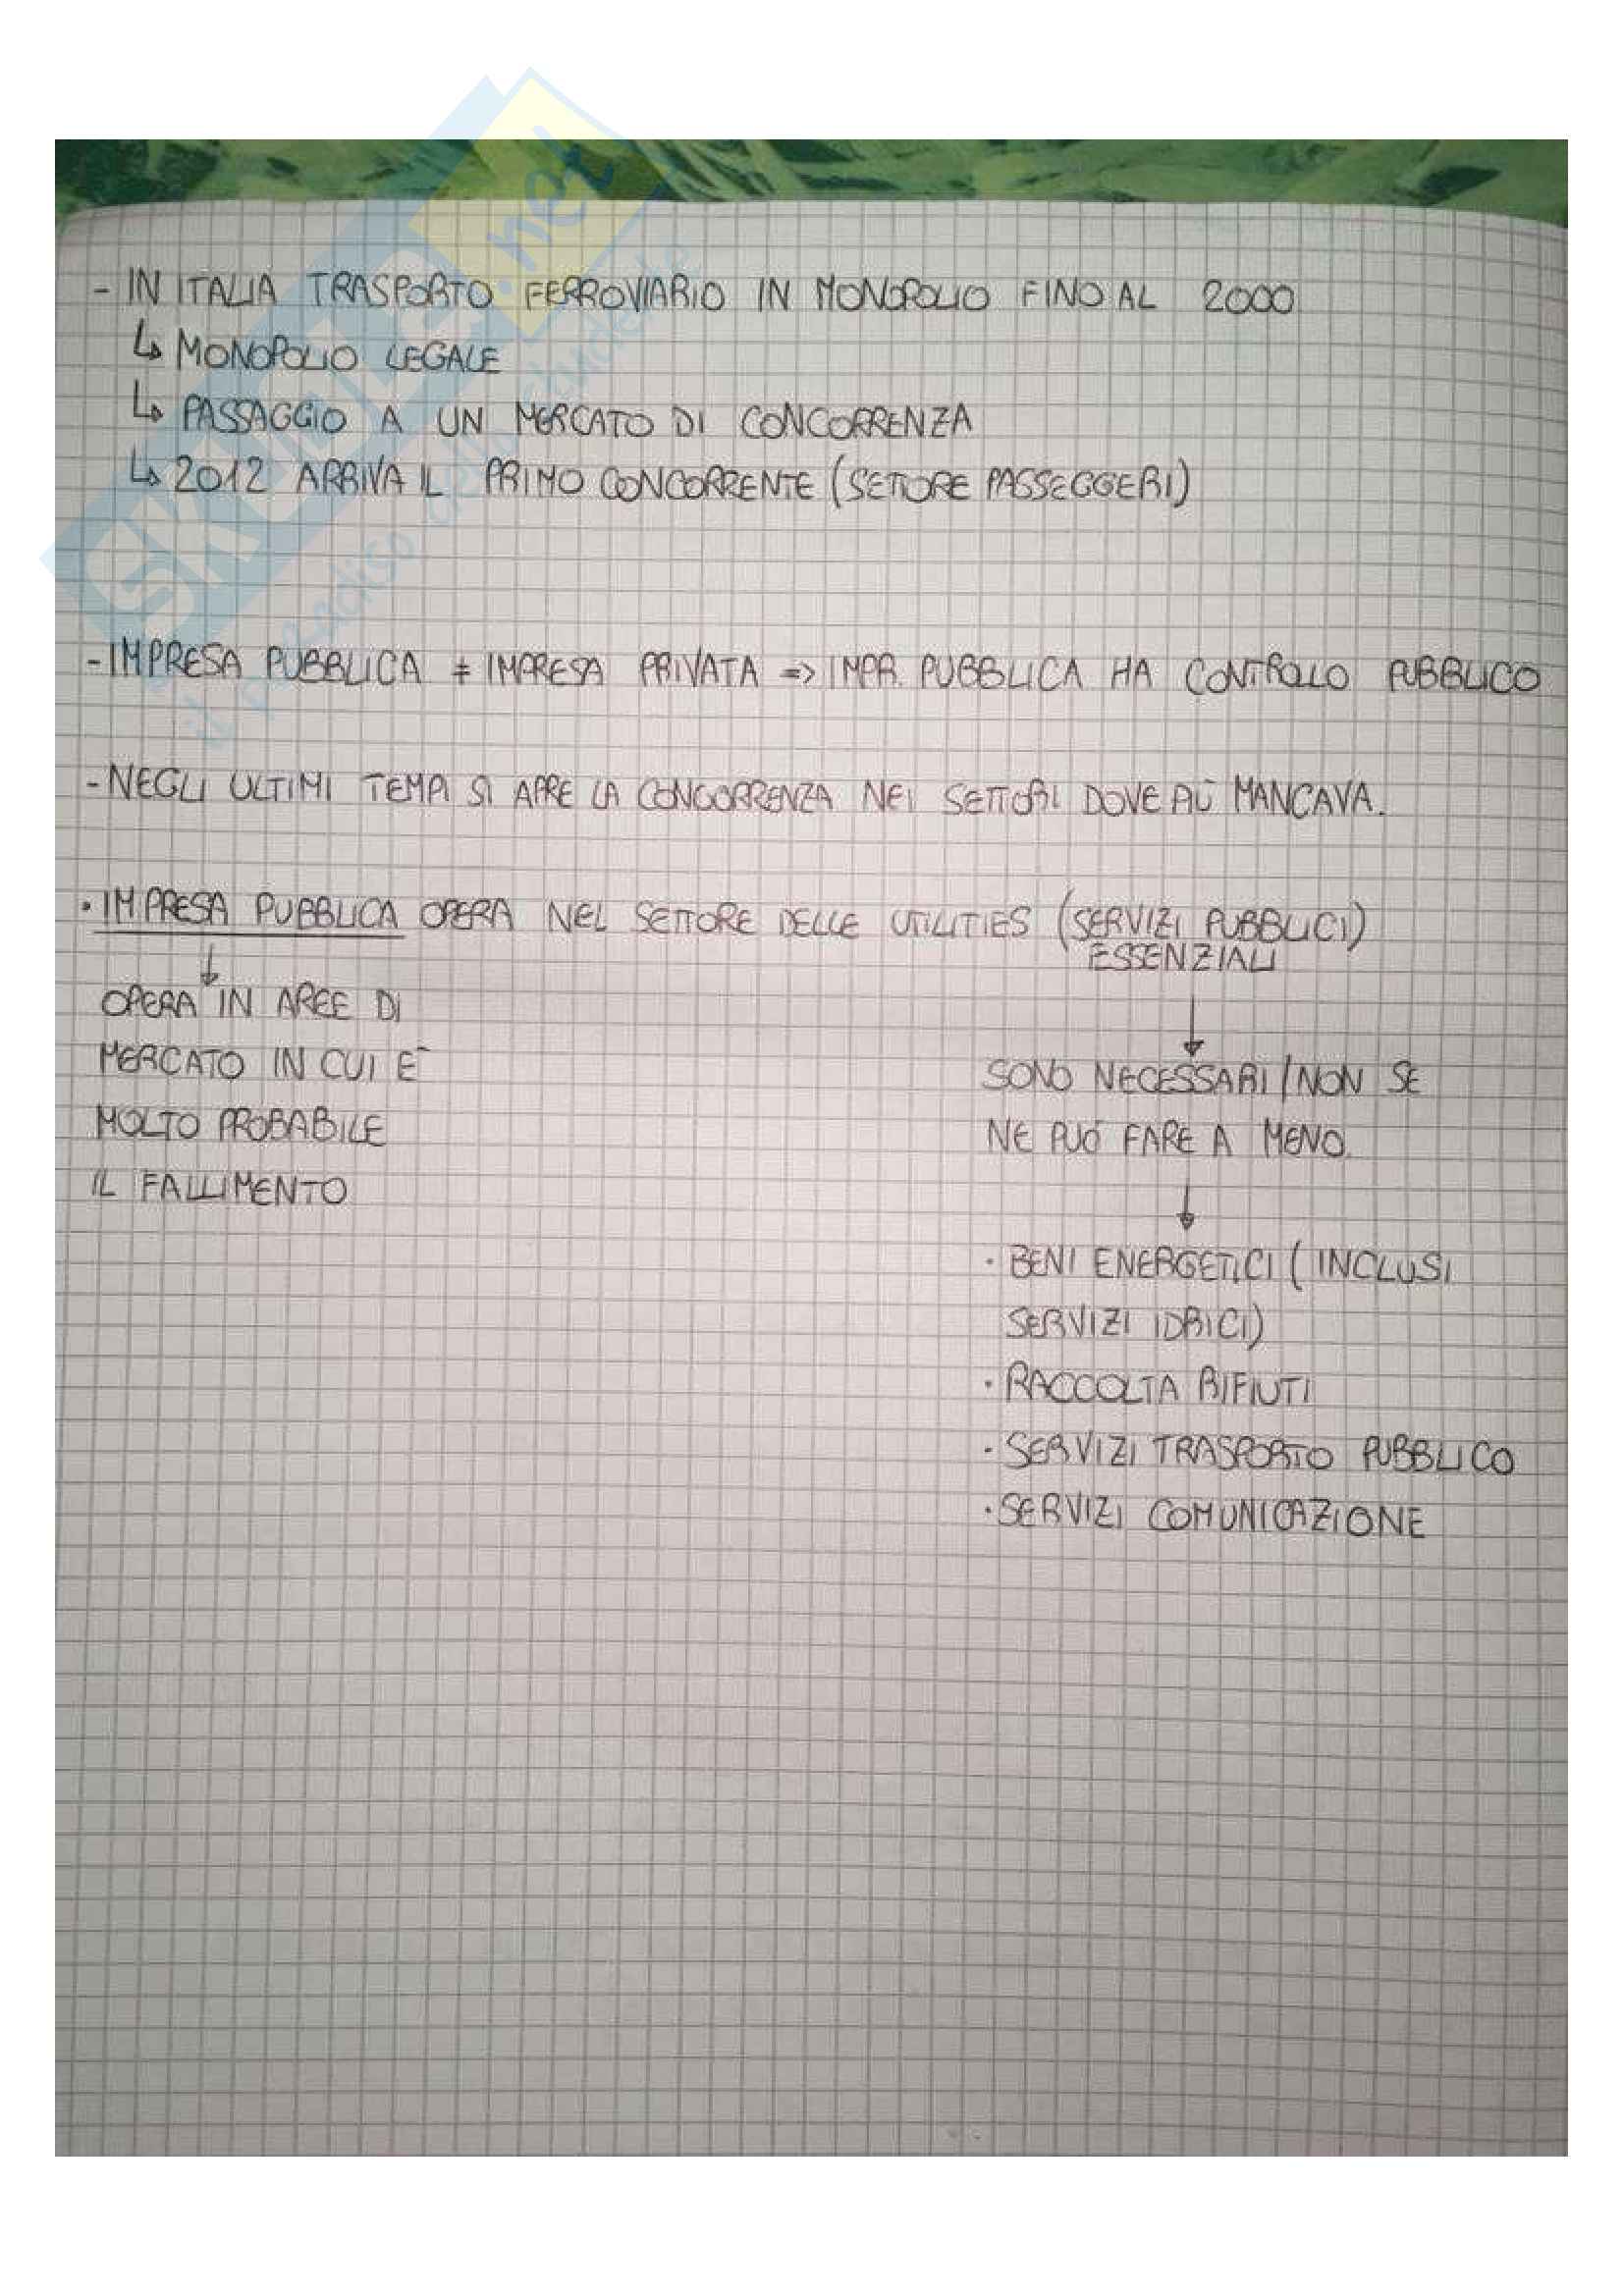 - IN ITALIA TRASPORTO FERROVIARIO IN MONOPOLIO FINO AL 2000
↳ MONOPOLIO LEGALE
↳ PASSAGGIO A UN MERCATO DI CONCORRENZA
↳ 2012 ARRIVA IL PRIMO CONCORRENTE (SETTORE PASSEGGERI)
- IMPRESA PUBBLICA ≠ IMPRESA PRIVATA => IMPR. PUBBLICA HA CONTROLLO PUBBLICO
- NEGLI ULTIMI TEMPI SI APRE LA CONCORRENZA NEI SETTORI DOVE PIÙ MANCAVA.
• IMPRESA PUBBLICA OPERA NEL SETTORE DELLE UTILITIES (SERVIZI PUBBLICI)
ESSENZIALI
↓
OPERA IN AREE DI
MERCATO IN CUI È
MOLTO PROBABILE
IL FALLIMENTO
↓
SONO NECESSARI / NON SE
NE PUÓ FARE A MENO.
↓
• BENI ENERGETICI (INCLUSI
SERVIZI IDRICI)
• RACCOLTA RIFIUTI
• SERVIZI TRASPORTO PUBBLICO
• SERVIZI COMUNICAZIONE
SKUOLA.net
il paradiso dello studente